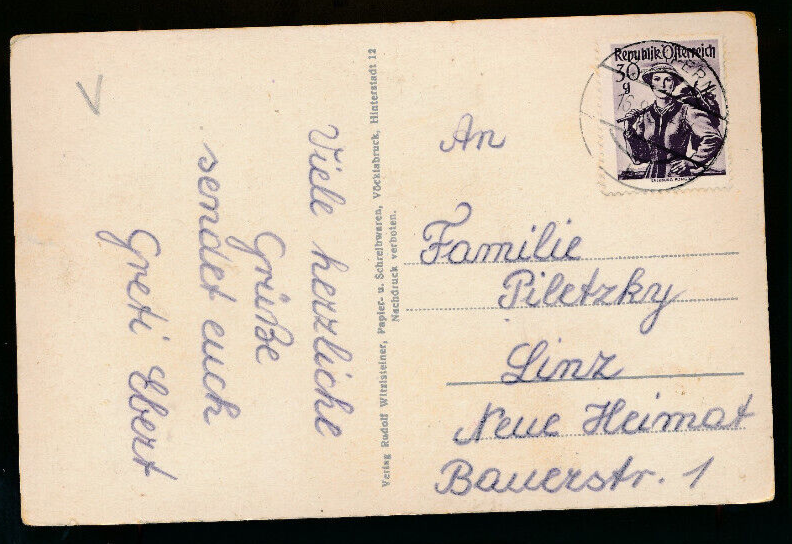 Viele herzliche
Grüße
sendet euch
Greti Ebert
Verlag Rudolf Witzlsteiner, Papier- u. Schreibwaren, Vöcklabruck, Hinterstadt 12
Nachdruck verboten.
Republik Österreich
30
g
An
Familie
Piletzky
Linz
Neue Heimat
Bauerstr. 1